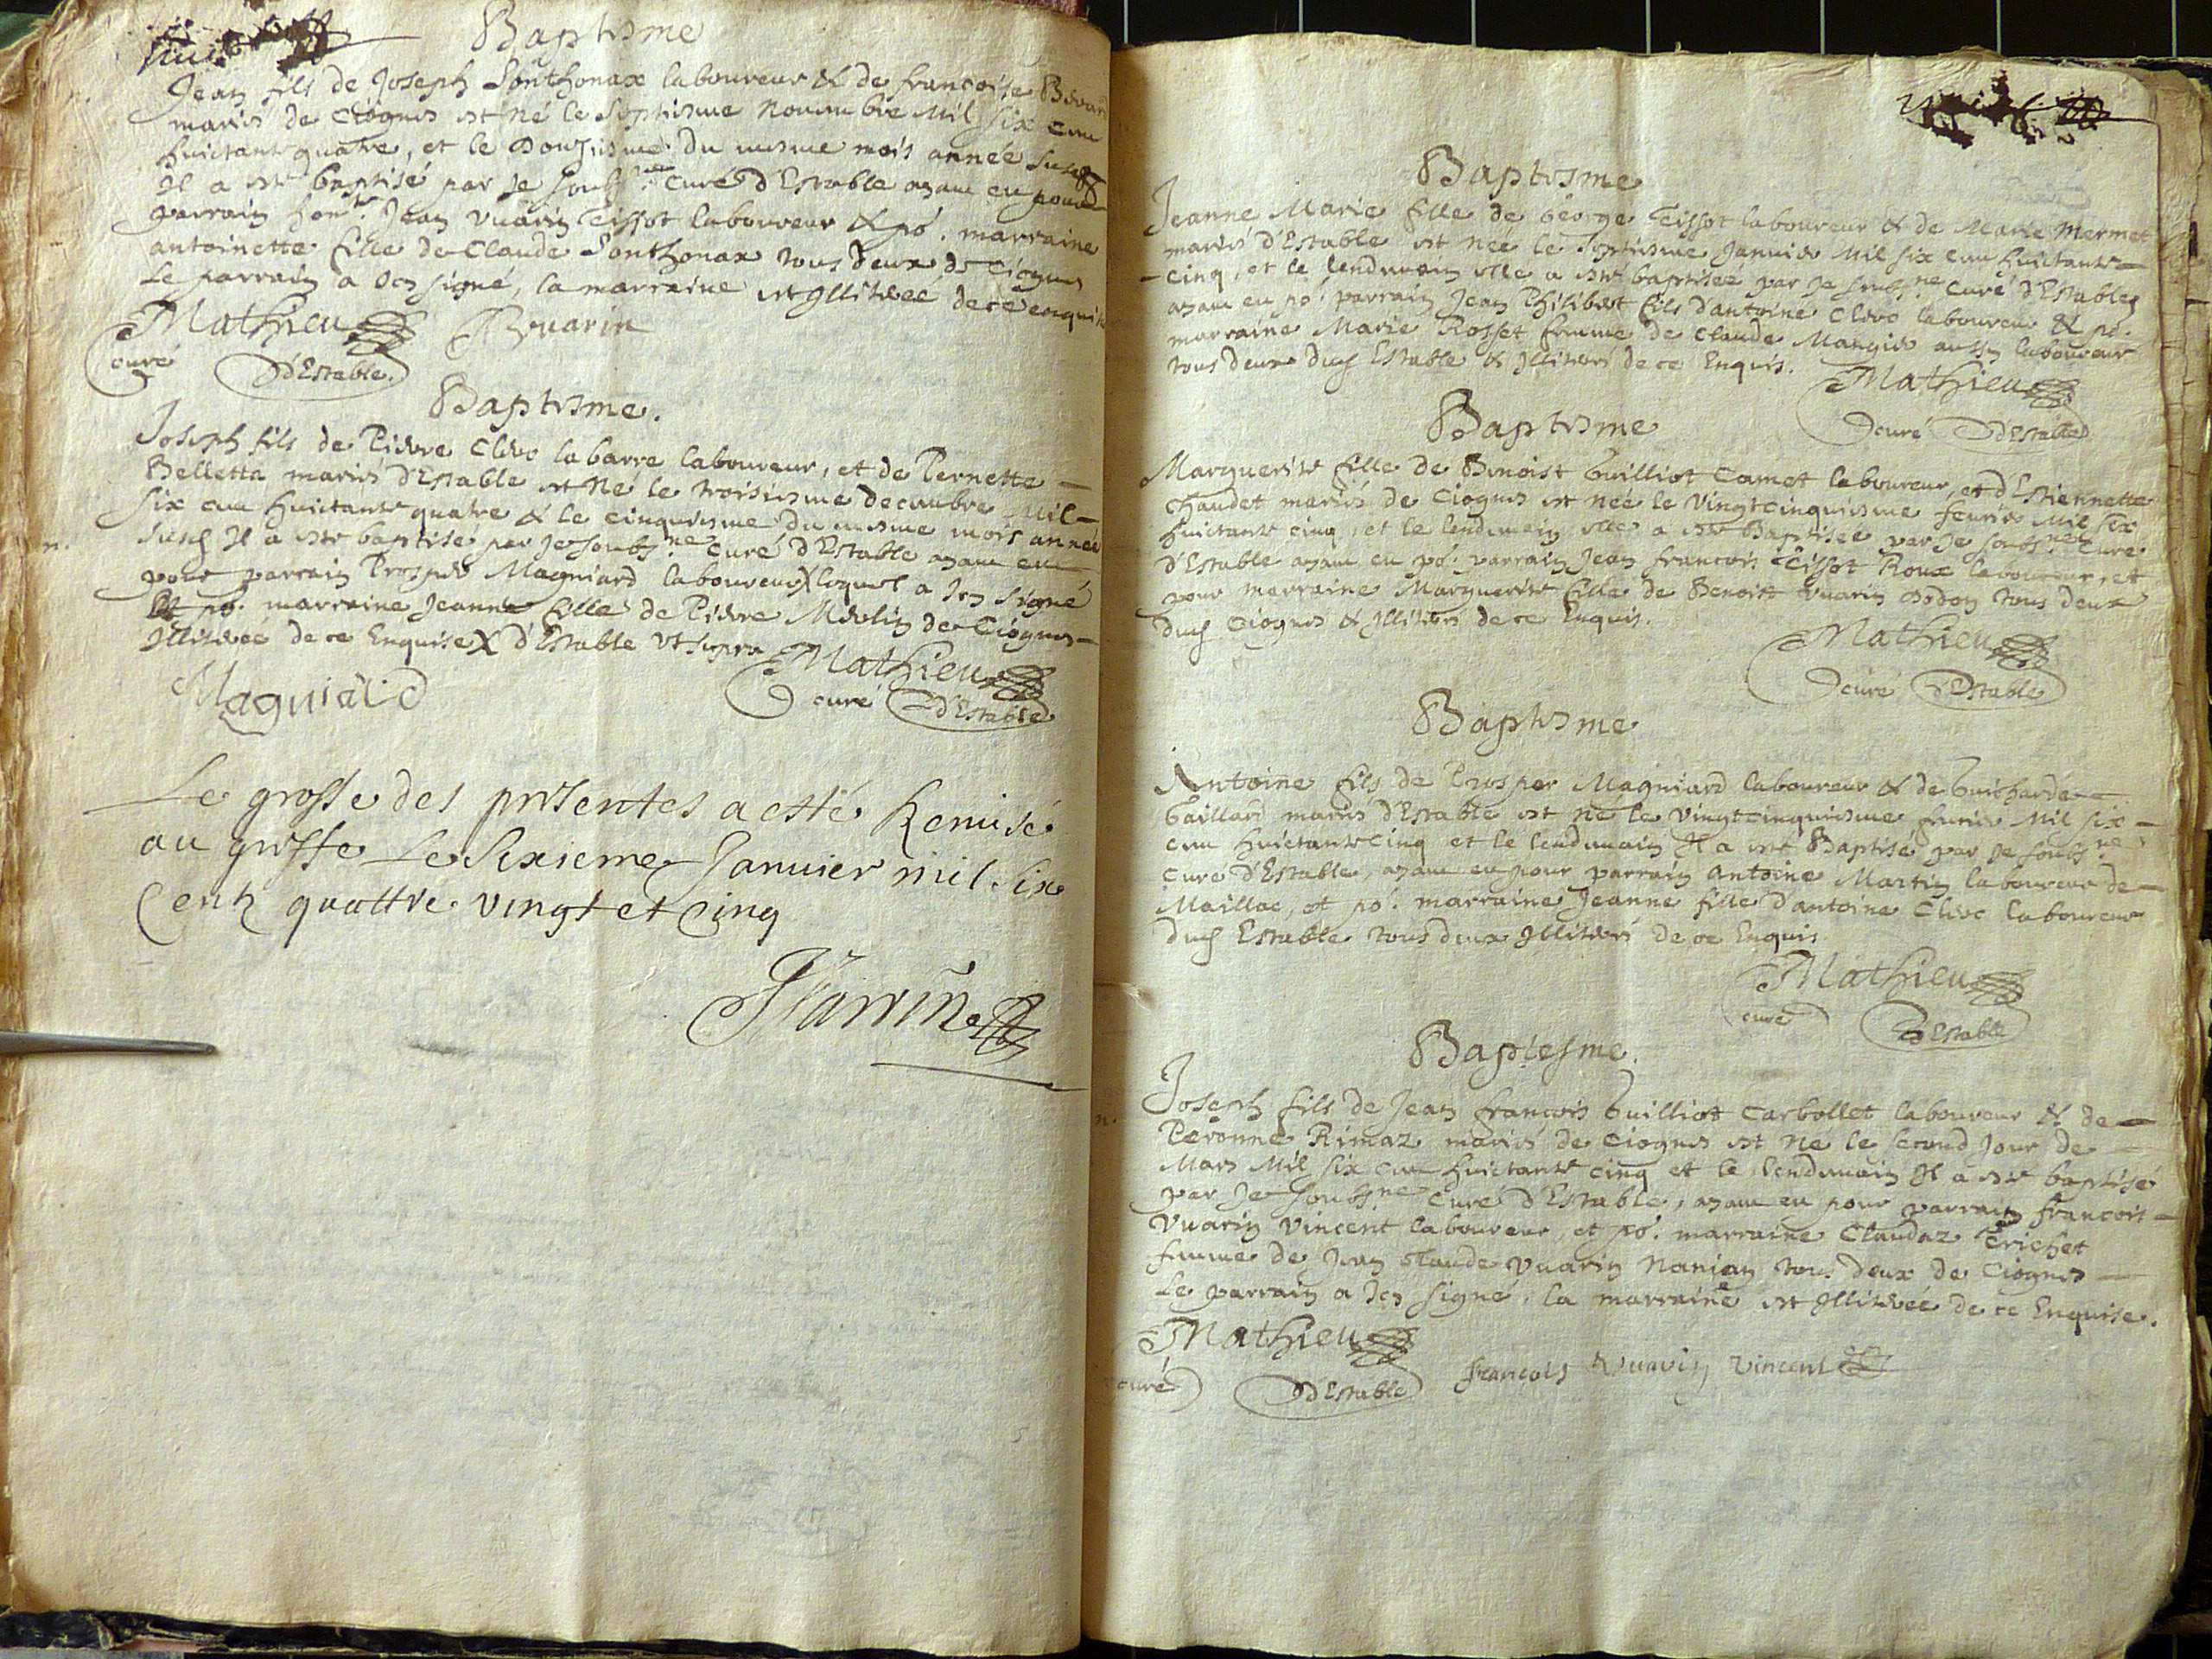 Baptisme
Jean fils de Joseph Sonthonax laboureur & de francoise
mariés de Ciognes est né le Septiesme Nouembre Mil six cens
huictante quatre, et le Dousiesme du mesme mois année susd
Il a este baptisé par Je soubs.né Curé d'Estable ayant eu pour
parrain hon.te Jean Vuarin Tissot laboureur & po.r marraine
antoinette fille de Claude Sonthonax tous deux de Ciognes
Le parrain a Icy signé, la marraine est Illiterée de ce enquise
Mathieu Bvuarin
curé d'Estable
Baptisme.
Joseph fils de Pierre Clerc labarre laboureur, et de Pernette
Belletta mariés d'Estable est Né le troisiesme decembre Mil
six cens huictante quatre & le cinquiesme du mesme mois année
susd Il a este baptisé par Je soubs.né Curé d'Estable ayant eu
pour parrain Prosper Magniard laboureur X lequel a Icy signé
Et po.r marraine Jeanne fille de Pierre Merlin de Ciognes
Illiterée de ce Enquise X d'Estable Vt supra Mathieu
Magniard curé d'Estable
Le grosse des presentes a esté Remise
au greffe Le Sixieme Januier mil Six
Centz quattre vingt et Cinq
Baptisme
Jeanne Marie fille de George Tissot laboureur & de Marie Mermet
mariés d'Estable est née le Septiesme Januier Mil six cens huictante
cinq, et le lendemain elle a este baptisée par Je soubs.né Curé d'Estable
ayant eu po.r parrain Jean Philibert fils d'antoine Clerc laboureur & po.r
marraine Marie Rosset femme de Claude Mangier aussy laboureur
tous deux dud Estable & Illiterés de ce Enquis. Mathieu
curé d'Estable
Baptisme
Marguerite fille de Benoist Guilliot Camet laboureur, et d'Estiennette
Chaudet mariés de Ciognes est née le Vingtcinquiesme feurier Mil six
huictante cinq, et le lendemain elle a este Baptisée par Je soubs.né Curé
d'Estable ayant eu po.r parrain Jean francois Tissot Roux laboureur, et
pour marraine Marguerite fille de Benoist Vuarin Dodon tous deux
dud Ciognes & Illiterés de ce Enquis.
Mathieu
curé d'Estable
Baptisme
Antoine fils de Prosper Magniard laboureur & de Guicharde
Gaillard mariés d'Estable est né le Vingtcinquiesme feurier Mil six
cens huictante Cinq et le lendemain Il a este Baptisé par Je soubs.né
Curé d'Estable, ayant eu pour parrain Antoine Martin laboureur de
Maillac, et po.r marraine Jeanne fille d'antoine Clerc laboureur
dud Estable tous deux Illiterés de ce Enquis
Mathieu
curé d'Estable
Baptesme.
Joseph fils de Jean françois Guilliot Carbollet laboureur & de
Peronne Rimaz mariés de Ciognes est Né le second Jour de
Mars Mil six cens huictante cinq et le lendemain Il a este baptisé
par Je soubs.né Curé d'Estable, ayant eu pour parrain francois
Vuarin Vincent laboureur, et po.r marraine Claudaz Trichet
femme de Jean Claude Vuarin Nanian tous deux de Ciognes
Le parrain a Icy signé, la marraine est Illiterée de ce Enquise.
Mathieu
curé d'Estable francois Vuarin Vincent